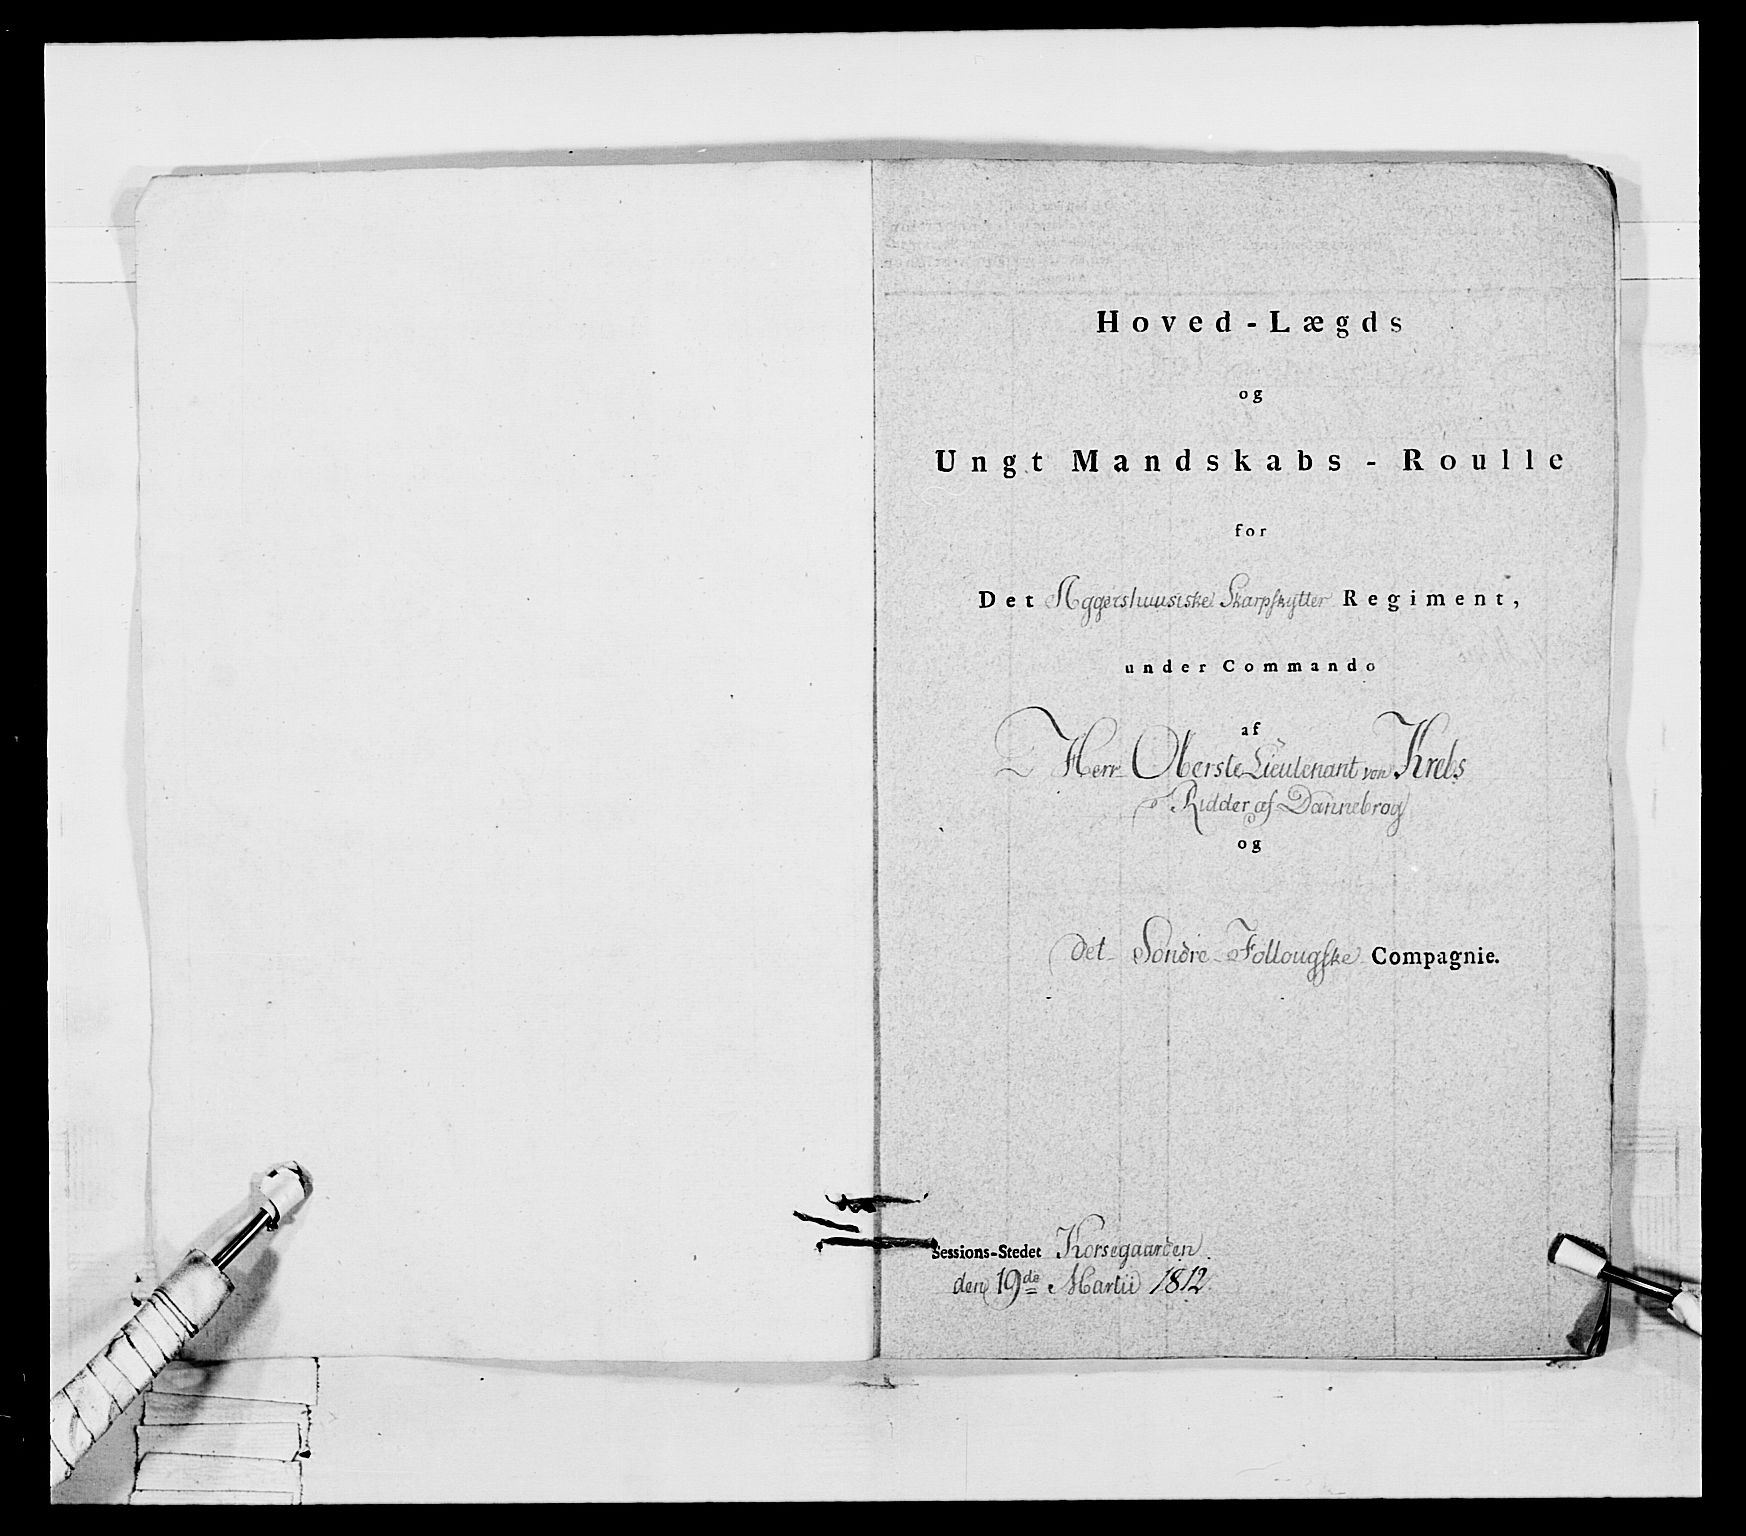 Hoved-Lægds
og
Ungt Mandskabs-Roulle
for
Det Aggershuusiske Skarpskytter Regiment,
under Commando
af
Herr Oberste Lieutenant von Krebs
Ridder af Dannebrog
og
det Søndre Follougske Compagnie.
Sessions-Stedet Korsegaarden.
den 19de Martii 1812.